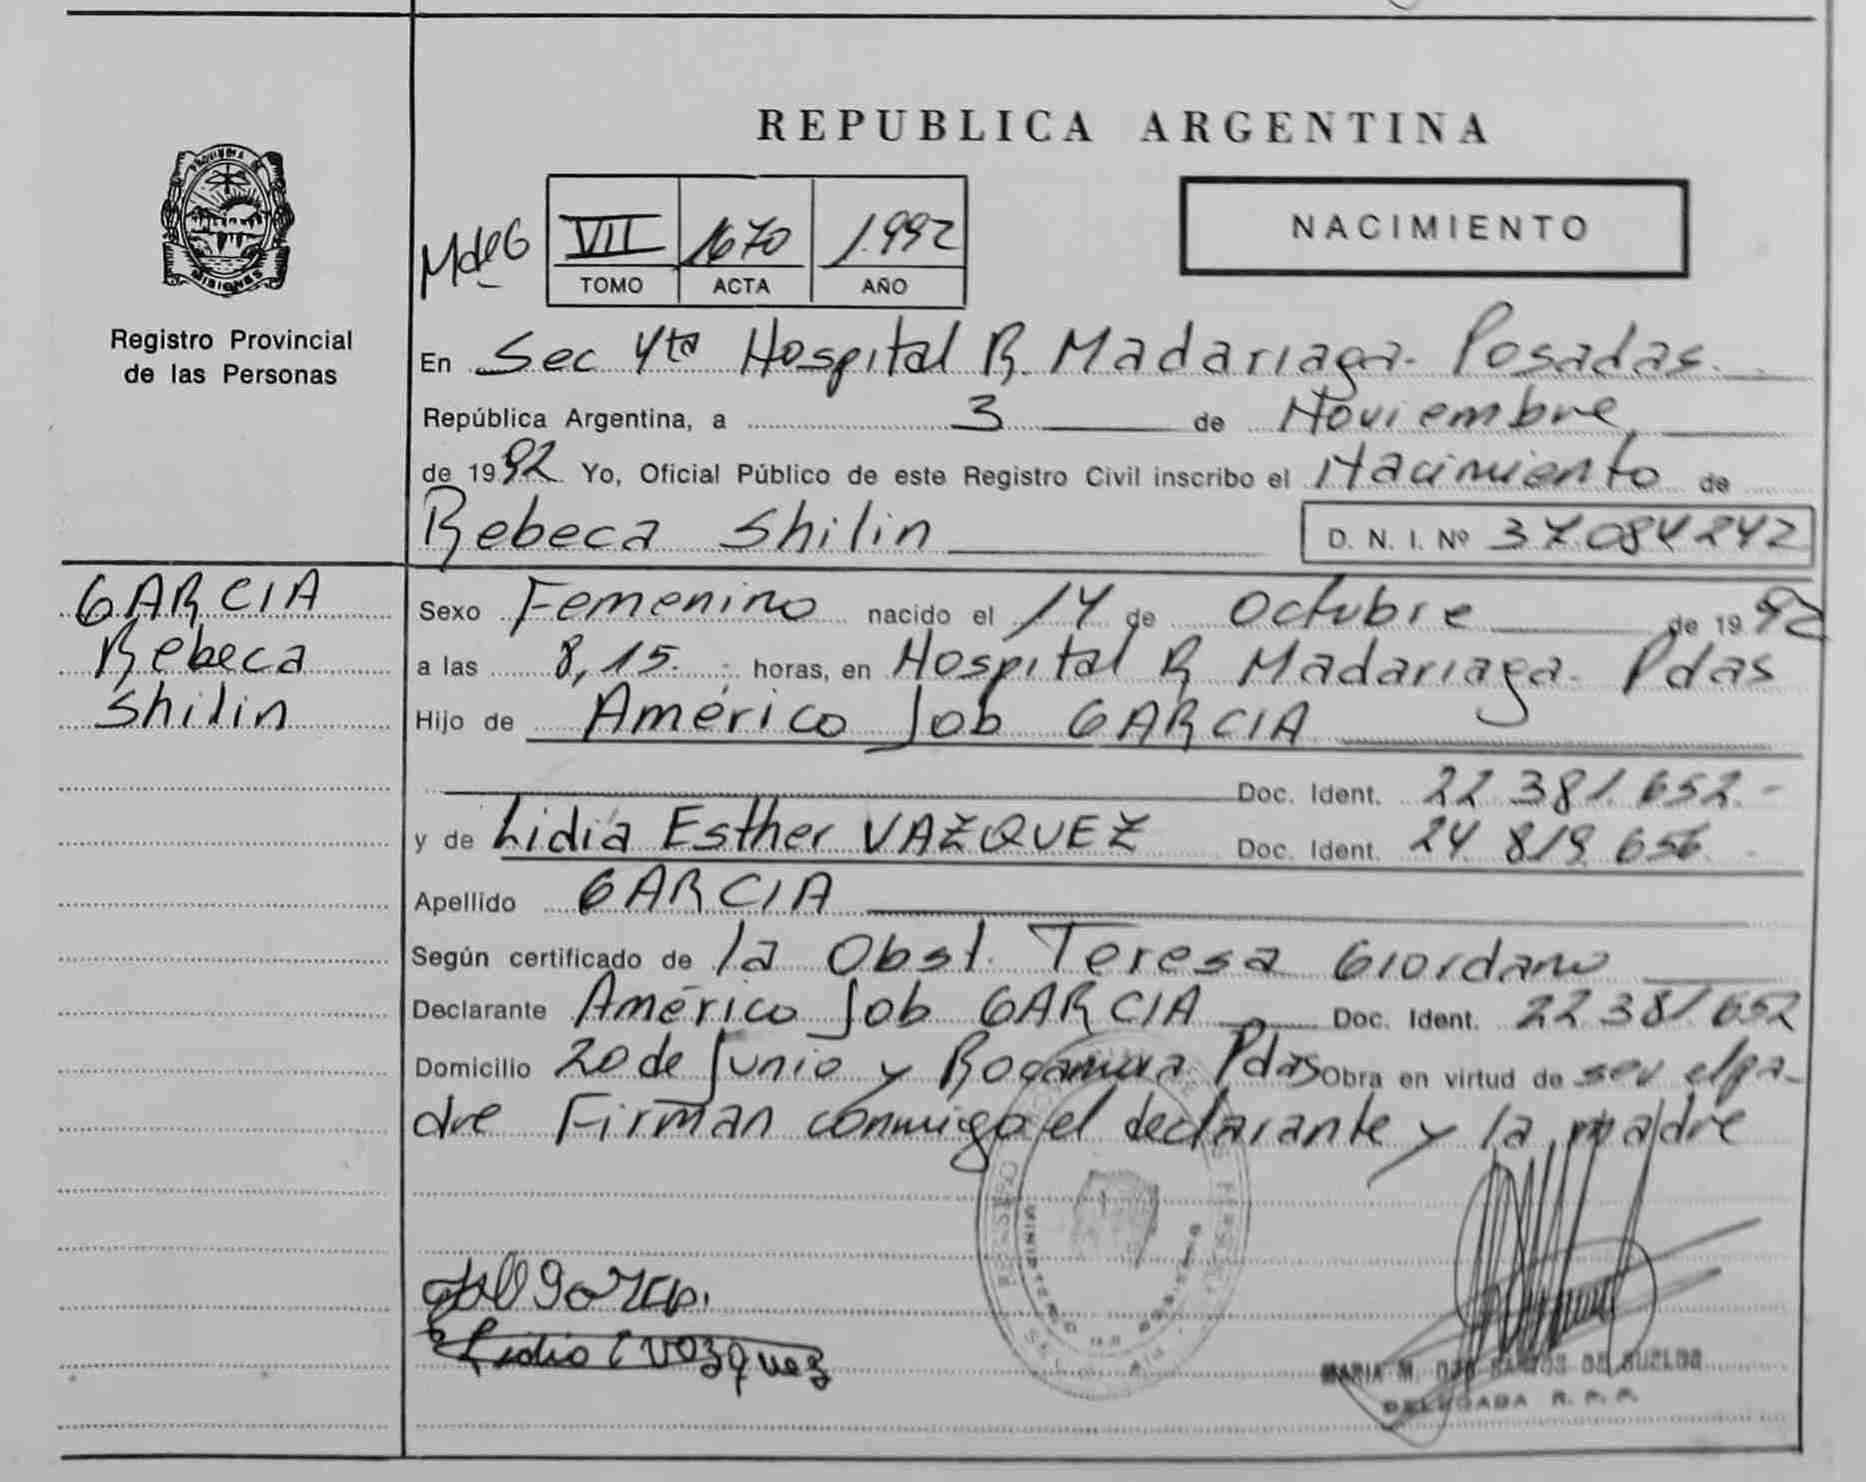 REPUBLICA ARGENTINA
PROVINCIA DE
MISIONES
Registro Provincial
de las Personas
MdeG
VII 1670 1.992
TOMO ACTA AÑO
NACIMIENTO
En Sec 4ta Hospital R. Madariaga - Posadas.
República Argentina, a 3 de Noviembre
de 1992 Yo, Oficial Público de este Registro Civil inscribo el Nacimiento de
Rebeca Shilin D. N. I. Nº 37.084.242
GARCIA
Rebeca
Shilin
Sexo Femenino nacido el 14 de Octubre de 1992
a las 8,15. horas, en Hospital R Madariaga - Pdas
Hijo de Américo Job GARCIA
Doc. Ident. 22.381.652 -
y de Lidia Esther VAZQUEZ Doc. Ident. 24 819 656 -
Apellido GARCIA
Según certificado de la Obst. Teresa Giordano
Declarante Américo Job GARCIA Doc. Ident. 22 381 652
Domicilio 20 de Junio y Rocamora Pdas Obra en virtud de ser el pa-
dre Firman conmigo el declarante y la madre
Lidia E Vazquez
MARIA M. DOS SANTOS DE
DELEGADA R. P. P.